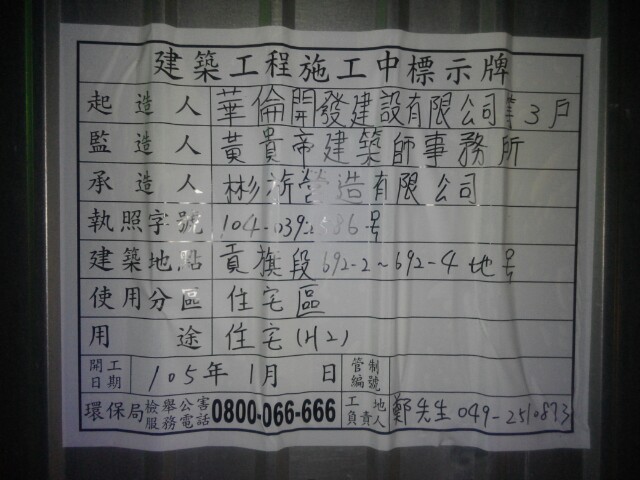 建築工程施工中標示牌
起造人 華倫開發建設有限公司等3戶
監造人 黃貴帝建築師事務所
承造人 彬 營造有限公司
執照字號 104-039 86号
建築地點 貢旗段692-2~692-4地号
使用分區 住宅區
用途 住宅(H2)
開工日期 105年1月 日 管制編號
環保局檢舉公害服務電話 0800-066-666 工地負責人 鄭先生 049-2510873